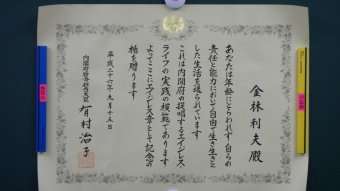 金林利夫殿
あなたは年齢にとらわれず自らの
責任と能力において自由で生き生きと
した生活を送られています
これは内閣府が提唱するエイジレス
ライフの実践の模範であります
よってここにエイジレス章として記念の
楯を贈ります
平成二十六年九月十五日
内閣府特命担当大臣
有村治子